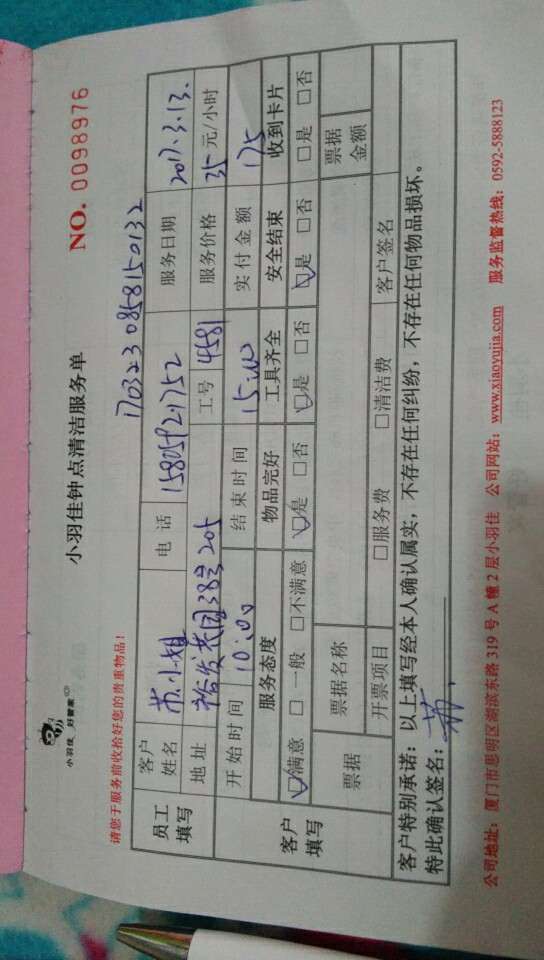 小羽佳 好管家
小羽佳钟点清洁服务单
NO. 0098976
请您于服务前收拾好您的贵重物品！
1703230858150132
员工填写 客户姓名 苏小姐 电话 服务日期 2017.3.13.
地址 38号205 工号 4581 服务价格 35元/小时
客户填写 开始时间 10:00 结束时间 15:00 实付金额 175
服务态度 物品完好 工具齐全 安全结束 收到卡片
☑满意 □一般 □不满意 ☑是 □否 ☑是 □否 ☑是 □否 □是 □否
票据 票据名称 票据金额
开票项目 □服务费 □清洁费 客户签名
客户特别承诺：以上填写经本人确认属实，不存在任何纠纷，不存在任何物品损坏。
特此确认签名：苏
公司地址：厦门市思明区湖滨东路319号A幢2层小羽佳 公司网站：www.xiaoyujia.com 服务监督热线：0592-5888123